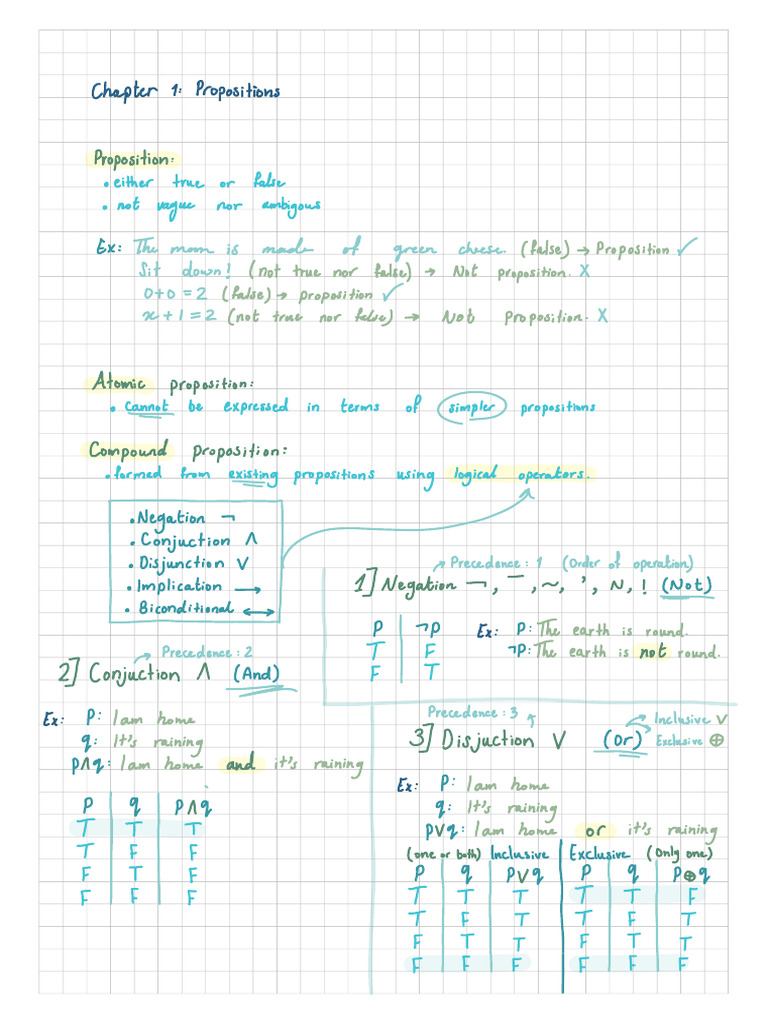 Chapter 1: Propositions
Proposition:
• either true or false
• not vague nor ambigous
Ex: The moon is made of green cheese. (false) → Proposition ✓
Sit down! (not true nor false) → Not proposition. X
0+0 = 2 (false) → proposition ✓
x + 1 = 2 (not true nor false) → Not Proposition. X
Atomic proposition:
• cannot be expressed in terms of simpler propositions
Compound proposition:
• formed from existing propositions using logical operators.
• Negation ¬
• Conjuction ∧
• Disjunction ∨
• Implication →
• Biconditional ↔
Precedence: 1 (Order of operation)
1] Negation ¬, ‾, ~, ', N, ! (Not)
P ¬P
T F
F T
Ex: P: The earth is round.
¬P: The earth is not round.
Precedence: 2
2] Conjuction ∧ (And)
Ex: P: I am home
q: It's raining
p∧q: I am home and it's raining
P q P∧q
T T T
T F F
F T F
F F F
Precedence: 3
3] Disjuction ∨ (Or) Inclusive ∨
Exclusive ⊕
Ex: P: I am home
q: It's raining
p∨q: I am home or it's raining
(one or both) Inclusive
P q P∨q
T T T
T F T
F T T
F F F
Exclusive (Only one)
P q P⊕q
T T F
T F T
F T T
F F F